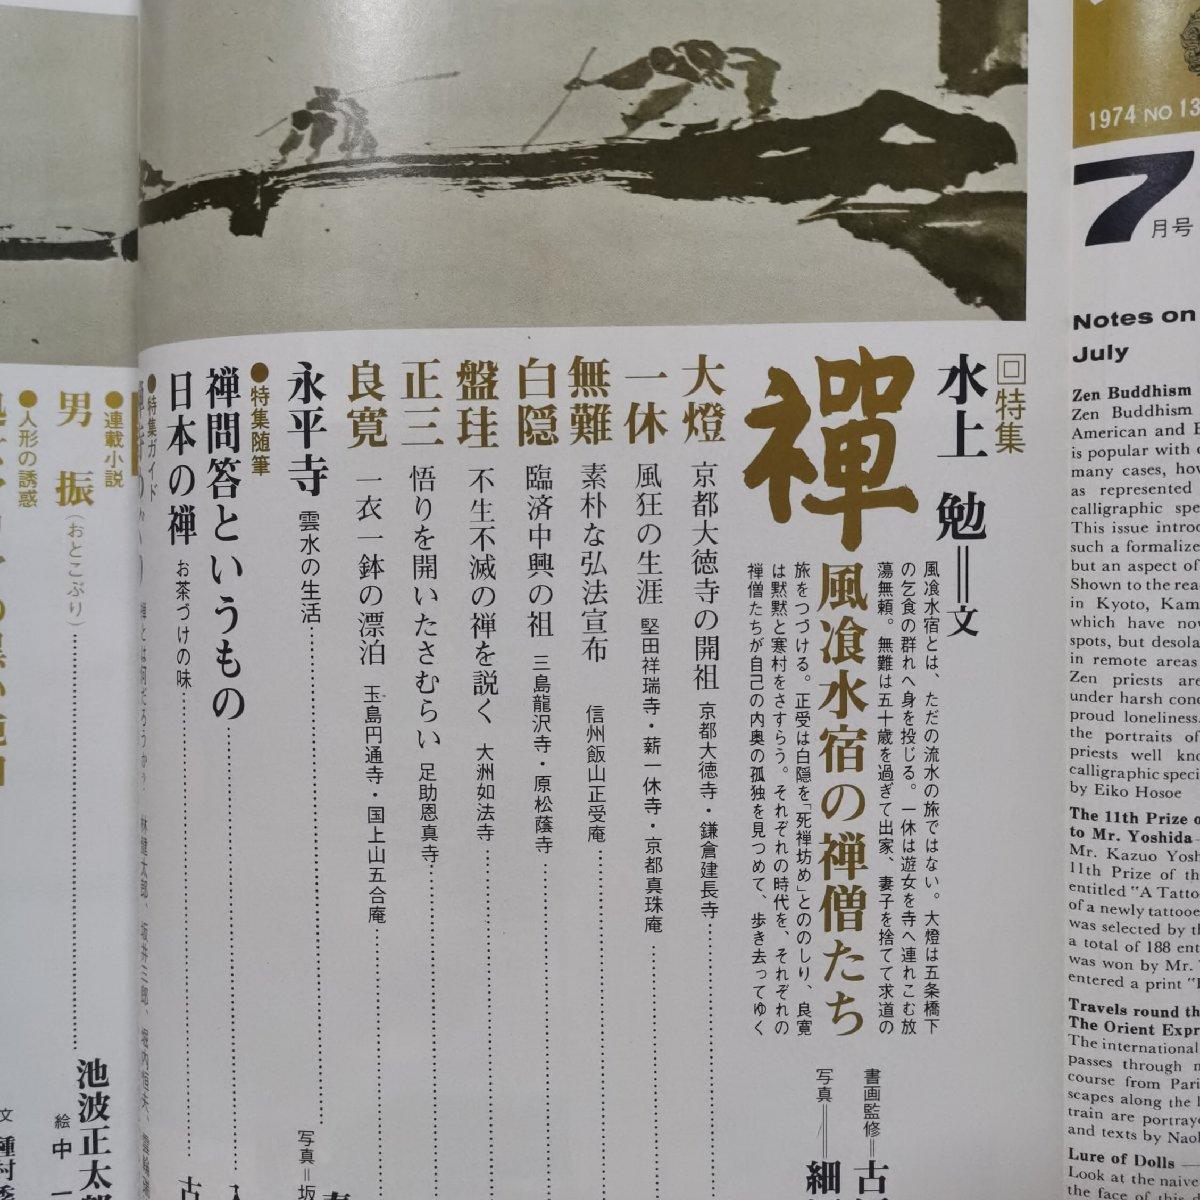 1974 NO 13
7月号
Notes on
July
Zen Buddhism
Zen Buddhism
American and E
is popular with
many cases, ho
as represented
calligraphic spe
This issue introd
such a formalize
but an aspect of
Shown to the rea
in Kyoto, Kam
which have now
spots, but desola
in remote areas
Zen priests are
under harsh con
proud loneliness.
the portraits of
priests well kno
calligraphic speci
by Eiko Hosoe
The 11th Prize o
to Mr. Yoshida
Mr. Kazuo Yosh
11th Prize of th
entitled "A Tatto
of a newly tattooe
was selected by th
a total of 188 ent
was won by Mr.
entered a print
Travels round th
The Orient Expr
The international
passes through
course from Pari
scapes along the
train are portraye
and texts by Naol
Lure of Dolls
Look at the naive
the face of
回特集
水上 勉＝文
禪 風飡水宿の禅僧たち
風飡水宿とは、ただの流水の旅ではない。大燈は五条橋下
の乞食の群れへ身を投じる。一休は遊女を寺へ連れこむ放
蕩無頼。無難は五十歳を過ぎて出家、妻子を捨てて求道の
旅をつづける。正受は白隠を「死禅坊め」とののしり、良寛
は黙黙と寒村をさすらう。それぞれの時代を、それぞれの
禅僧たちが自己の内奥の孤独を見つめて、歩き去ってゆく
書画監修＝古
写真＝細
大燈 京都大徳寺の開祖 京都大徳寺・鎌倉建長寺
一休 風狂の生涯 堅田祥瑞寺・薪一休寺・京都真珠庵
無難 素朴な弘法宣布 信州飯山正受庵
白隠 臨済中興の祖 三島龍沢寺・原松蔭寺
盤珪 不生不滅の禅を説く 大洲如法寺
正三 悟りを開いたさむらい 足助恩真寺
良寛 一衣一鉢の漂泊 玉島円通寺・国上山五合庵
永平寺 雲水の生活 写真＝坂
●特集随筆
禅問答というもの
日本の禅 お茶づけの味 古
●特集ガイド
禅とは何だろうか? 林健太郎、坂井三郎、堀内恒夫、
●連載小説
男振（おとこぶり） 池波正太郎
絵 中 一
●人形の誘惑
文 種村季